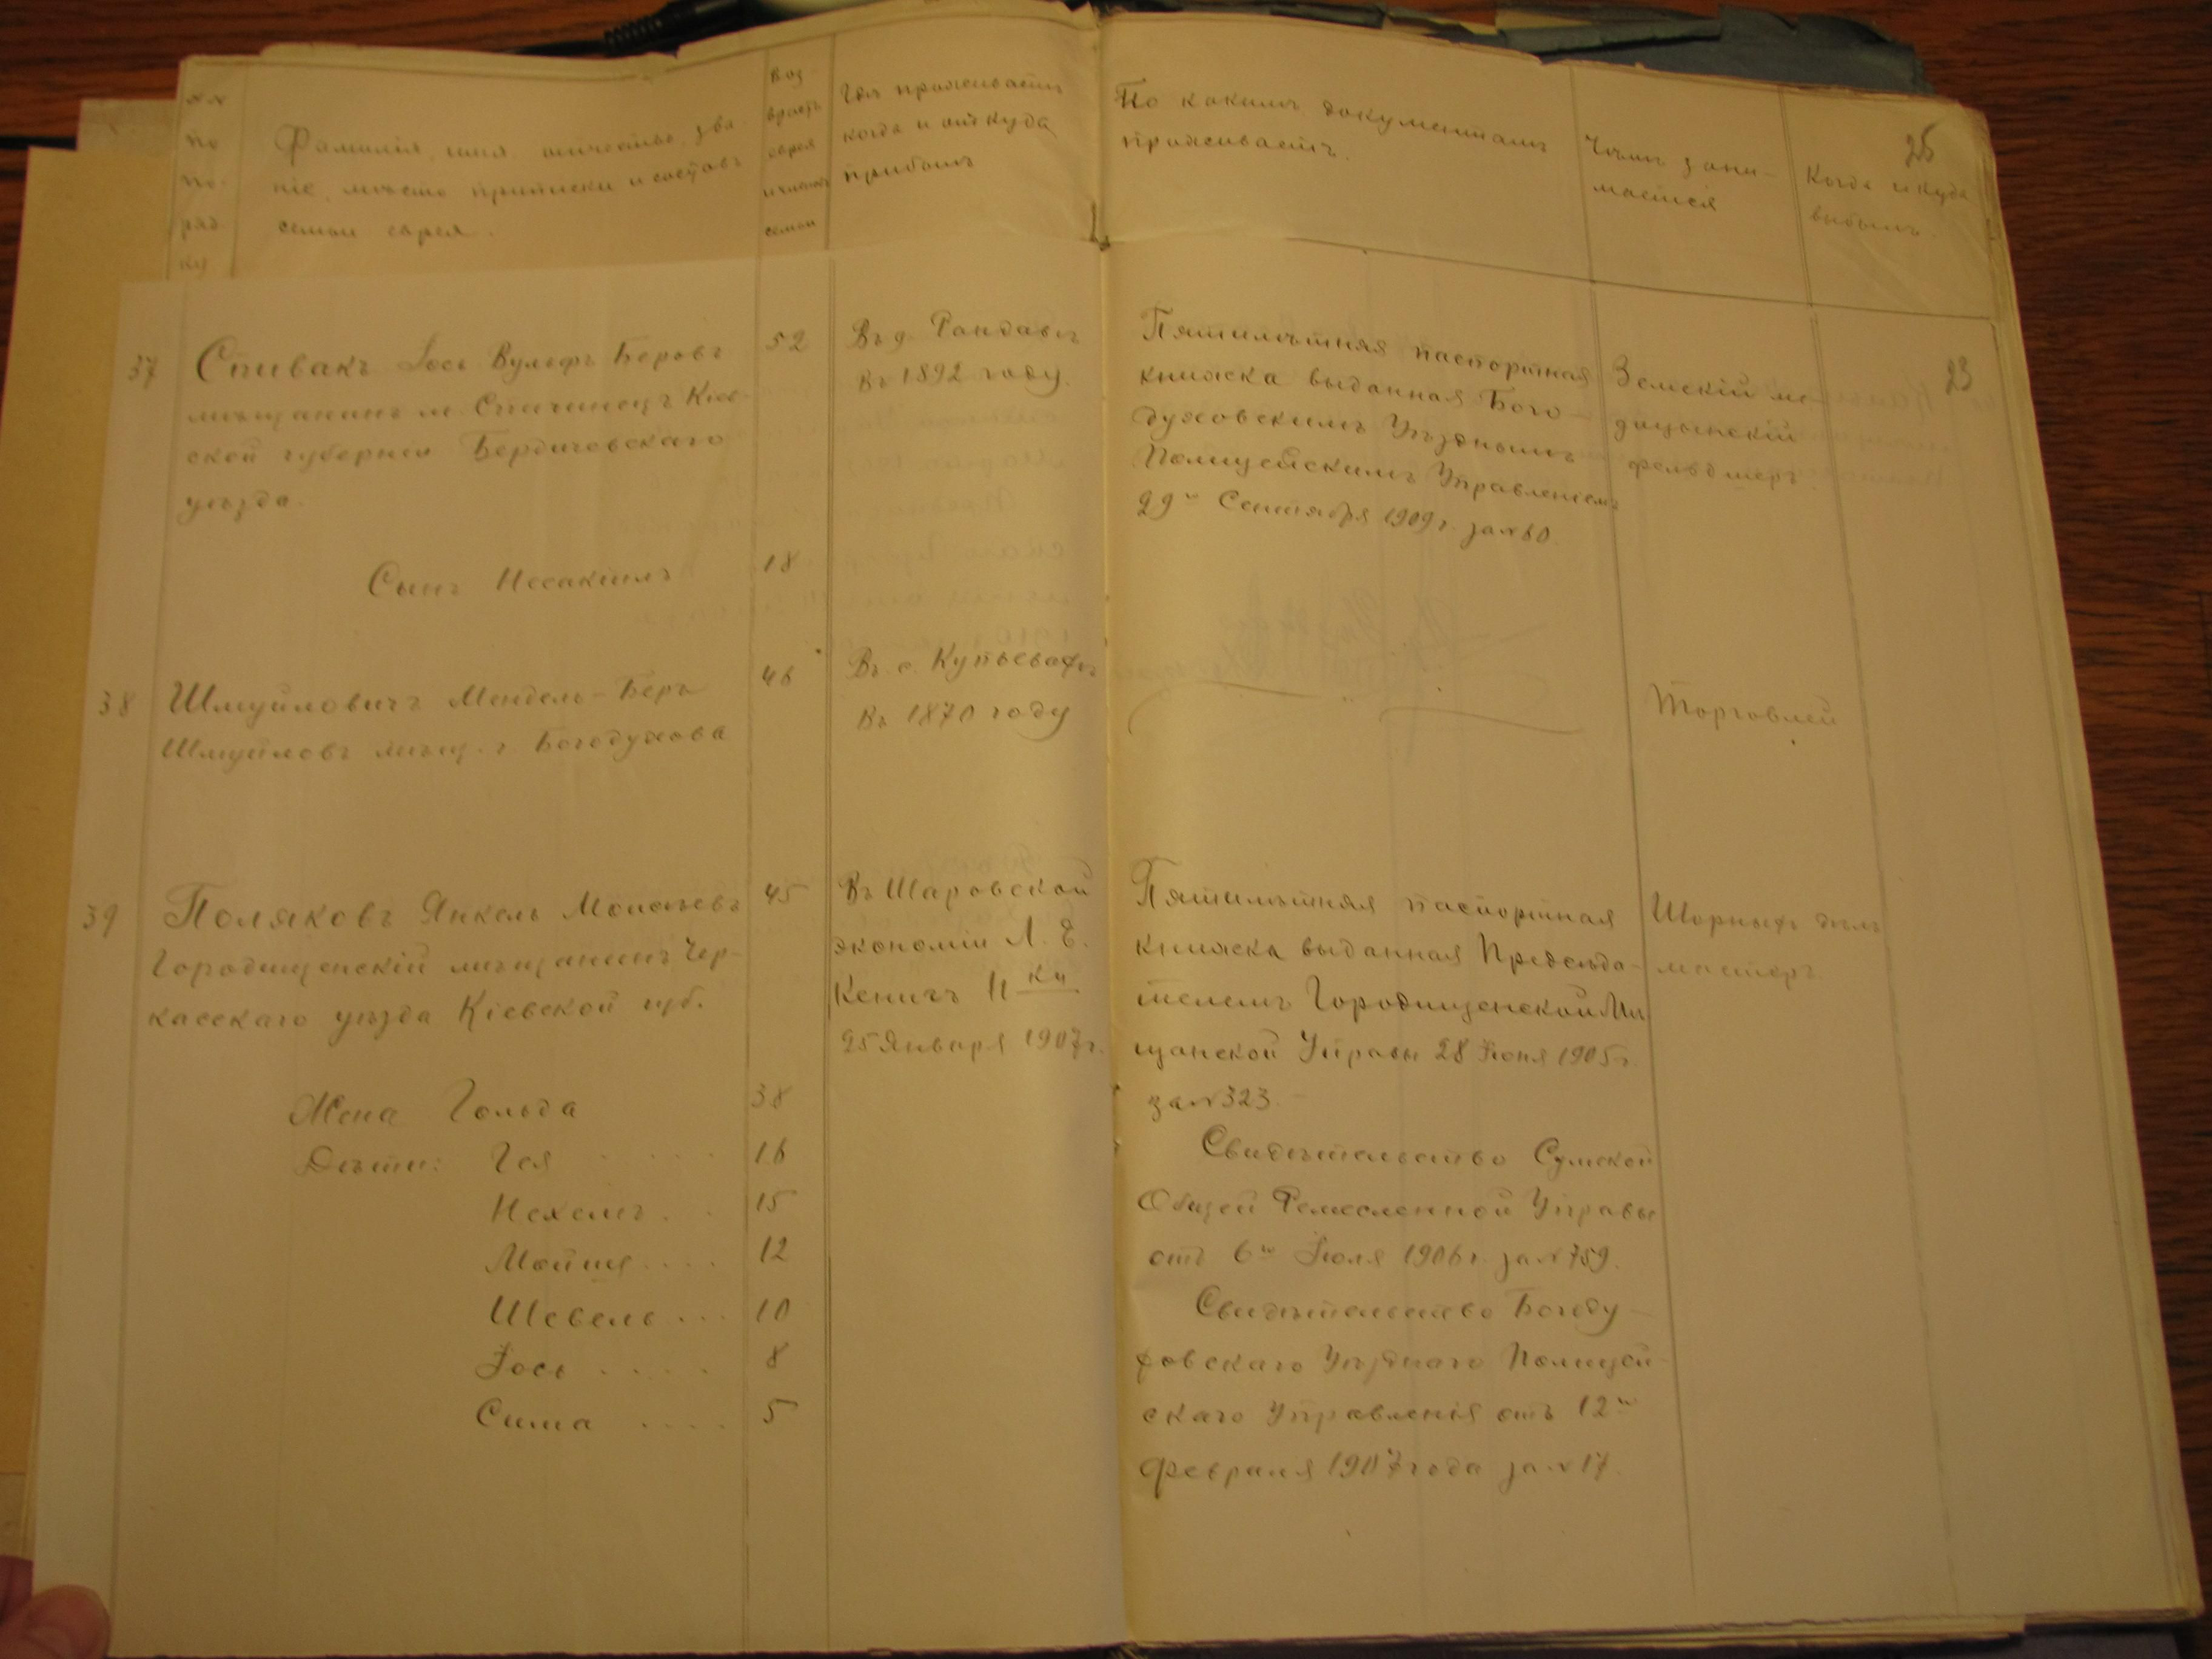 №№ по по- ряд ку
Фамилія, имя отчество, зва-
ніе, мѣсто приписки и составъ
семьи еврея.
Воз-
врастъ
еврея
и членовъ
семьи
Гдѣ проживаетъ
когда и откуда
прибылъ
По какимъ документамъ
проживаетъ.
Чѣмъ зани-
мается
Когда и куда
выбылъ.
37
Спивакъ Іось Вульфъ Беровъ
мѣщанинъ м. Спичинецъ Кіев-
ской губерніи Бердичевскаго
уѣзда.
52
Въ д.
Въ 1892 году.
Пятилѣтняя паспортная
книжка выданная Бого-
духовскимъ Уѣзднымъ
Полицейскимъ Управленіемъ
29го Сентября 1909 г. за №60
Земскій ме-
дицынскій
фельдшеръ
23
Сынъ
18
38
Шмуйловичъ Мендель-Беръ
Шмуйловъ мѣщ. г. Богодухова
46
Въ с. Купьевахъ
Въ 1870 году
Торговлей
39
Поляковъ Янкель Моисѣевъ
Городищенскій мѣщанинъ Чер-
касскаго уѣзда Кіевской губ.
45
Въ Шаровской
экономіи Л. Е.
Кенигъ Н-ки
25 Января 1907 г.
Пятилѣтняя паспортная
книжка выданная Предсѣда-
телемъ Городищенской Мѣ
щанской Управы 28 Іюня 1905 г.
за №323.
Шорныхъ дѣлъ
мастеръ
Жена Гольда 38
Дѣти: Гея 16
Нехемъ 15
Мойше 12
Шевель 10
Іось 8
Сима 5
Свидѣтельство Сумской
Общей Ремесленной Управы
отъ 6го Іюля 1906 г. за №759.
Свидѣтельство Богоду-
ховскаго Уѣзднаго Полицей-
скаго Управленія отъ 12го
Февраля 1907 года за №17.